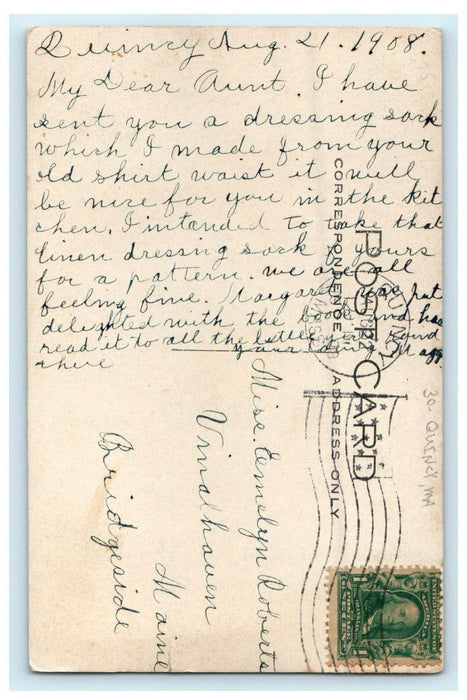 Quincy Aug. 21. 1908.
My Dear Aunt. I have
sent you a dressing sack
which I made from your
old shirt waist it will
be nice for you in the kit
chen. I intended to take that
linen dressing sack of yours
for a pattern. we are all
feeling fine. Margaret was just
delighted with the book and has
read it to all the little girls round
here
your Maggy
Miss. Emelyn Roberts
Vinalhaven
Maine
Bridgeside
POST CARD
CORRESPONDENCE
ADDRESS ONLY
QUINCY
MASS.
30- QUINCY, MA